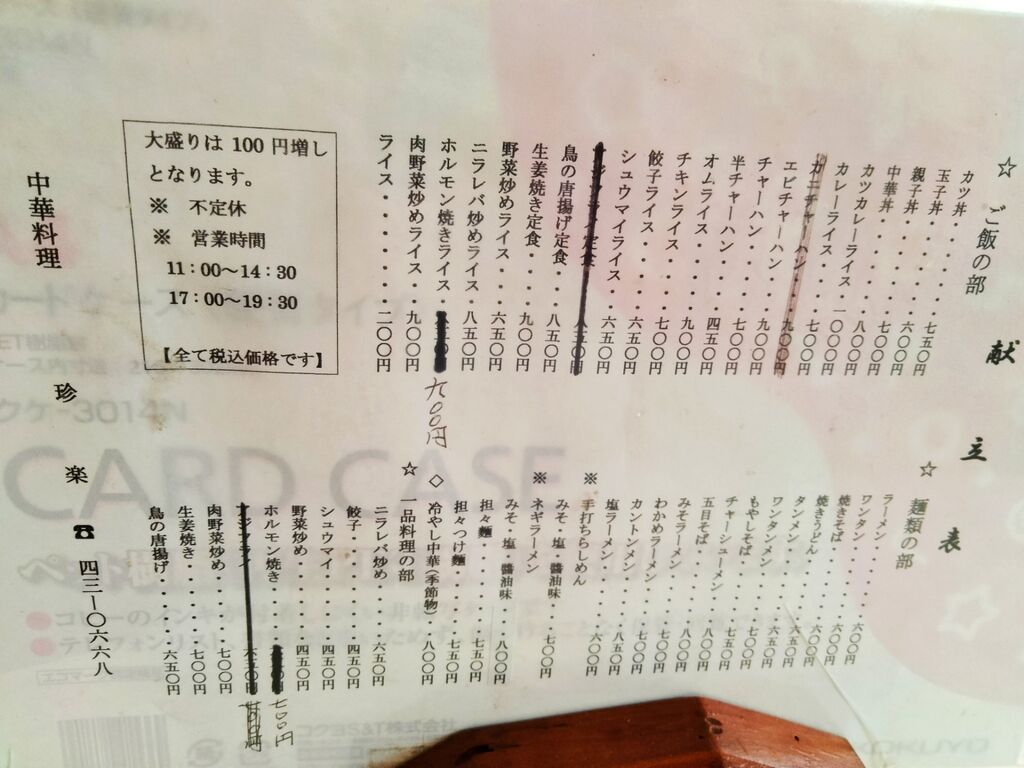 献立表
☆ ご飯の部
カツ丼・・・・・・七五〇円
玉子丼・・・・・・六〇〇円
親子丼・・・・・・七〇〇円
中華丼・・・・・・八〇〇円
カツカレーライス・・一〇〇〇円
カレーライス・・・・七〇〇円
カニチャーハン・・・九〇〇円
エビチャーハン・・・九〇〇円
チャーハン・・・・・七〇〇円
半チャーハン・・・・四五〇円
オムライス・・・・・九〇〇円
チキンライス・・・・七〇〇円
餃子ライス・・・・・六五〇円
シュウマイライス・・六五〇円
アジフライ定食・・・八五〇円
鳥の唐揚げ定食・・・八五〇円
生姜焼き定食・・・・九〇〇円
野菜炒めライス・・・六五〇円
ニラレバ炒めライス・八五〇円
ホルモン焼きライス・ 九〇〇円
肉野菜炒めライス・・九〇〇円
ライス・・・・・・・二〇〇円
大盛りは 100 円増し
となります。
※ 不定休
※ 営業時間
11:00〜14:30
17:00〜19:30
【全て税込価格です】
☆ 麺類の部
ラーメン・・・・・・六〇〇円
ワンタン・・・・・・六〇〇円
焼きそば・・・・・・六〇〇円
焼きうどん・・・・・六五〇円
タンメン・・・・・・六五〇円
ワンタンメン・・・・七五〇円
もやしそば・・・・・七五〇円
チャーシューメン・・八〇〇円
五目そば・・・・・・八〇〇円
みそラーメン・・・・七〇〇円
わかめラーメン・・・七〇〇円
カントンメン・・・・八五〇円
塩ラーメン・・・・・六〇〇円
※ 手打ちらしめん
みそ・塩・醬油味・・七〇〇円
※ ネギラーメン
みそ・塩・醬油味・・七五〇円
担々麺・・・・・・・八〇〇円
担々つけ麺・・・・・七五〇円
◇ 冷やし中華(季節物)・・八〇〇円
☆ 一品料理の部
ニラレバ炒め・・・・六五〇円
餃子・・・・・・・・四五〇円
シュウマイ・・・・・四五〇円
野菜炒め・・・・・・四五〇円
ホルモン焼き・・・・ 七〇〇円
アジフライ・・・・・六五〇円
肉野菜炒め・・・・・七〇〇円
生姜焼き・・・・・・七〇〇円
鳥の唐揚げ・・・・・六五〇円
中華料理 珍楽 ☎ 四三ー〇六六八
CARD CASE
クケ-3014N
コクヨS&T株式会社
KOKUYO